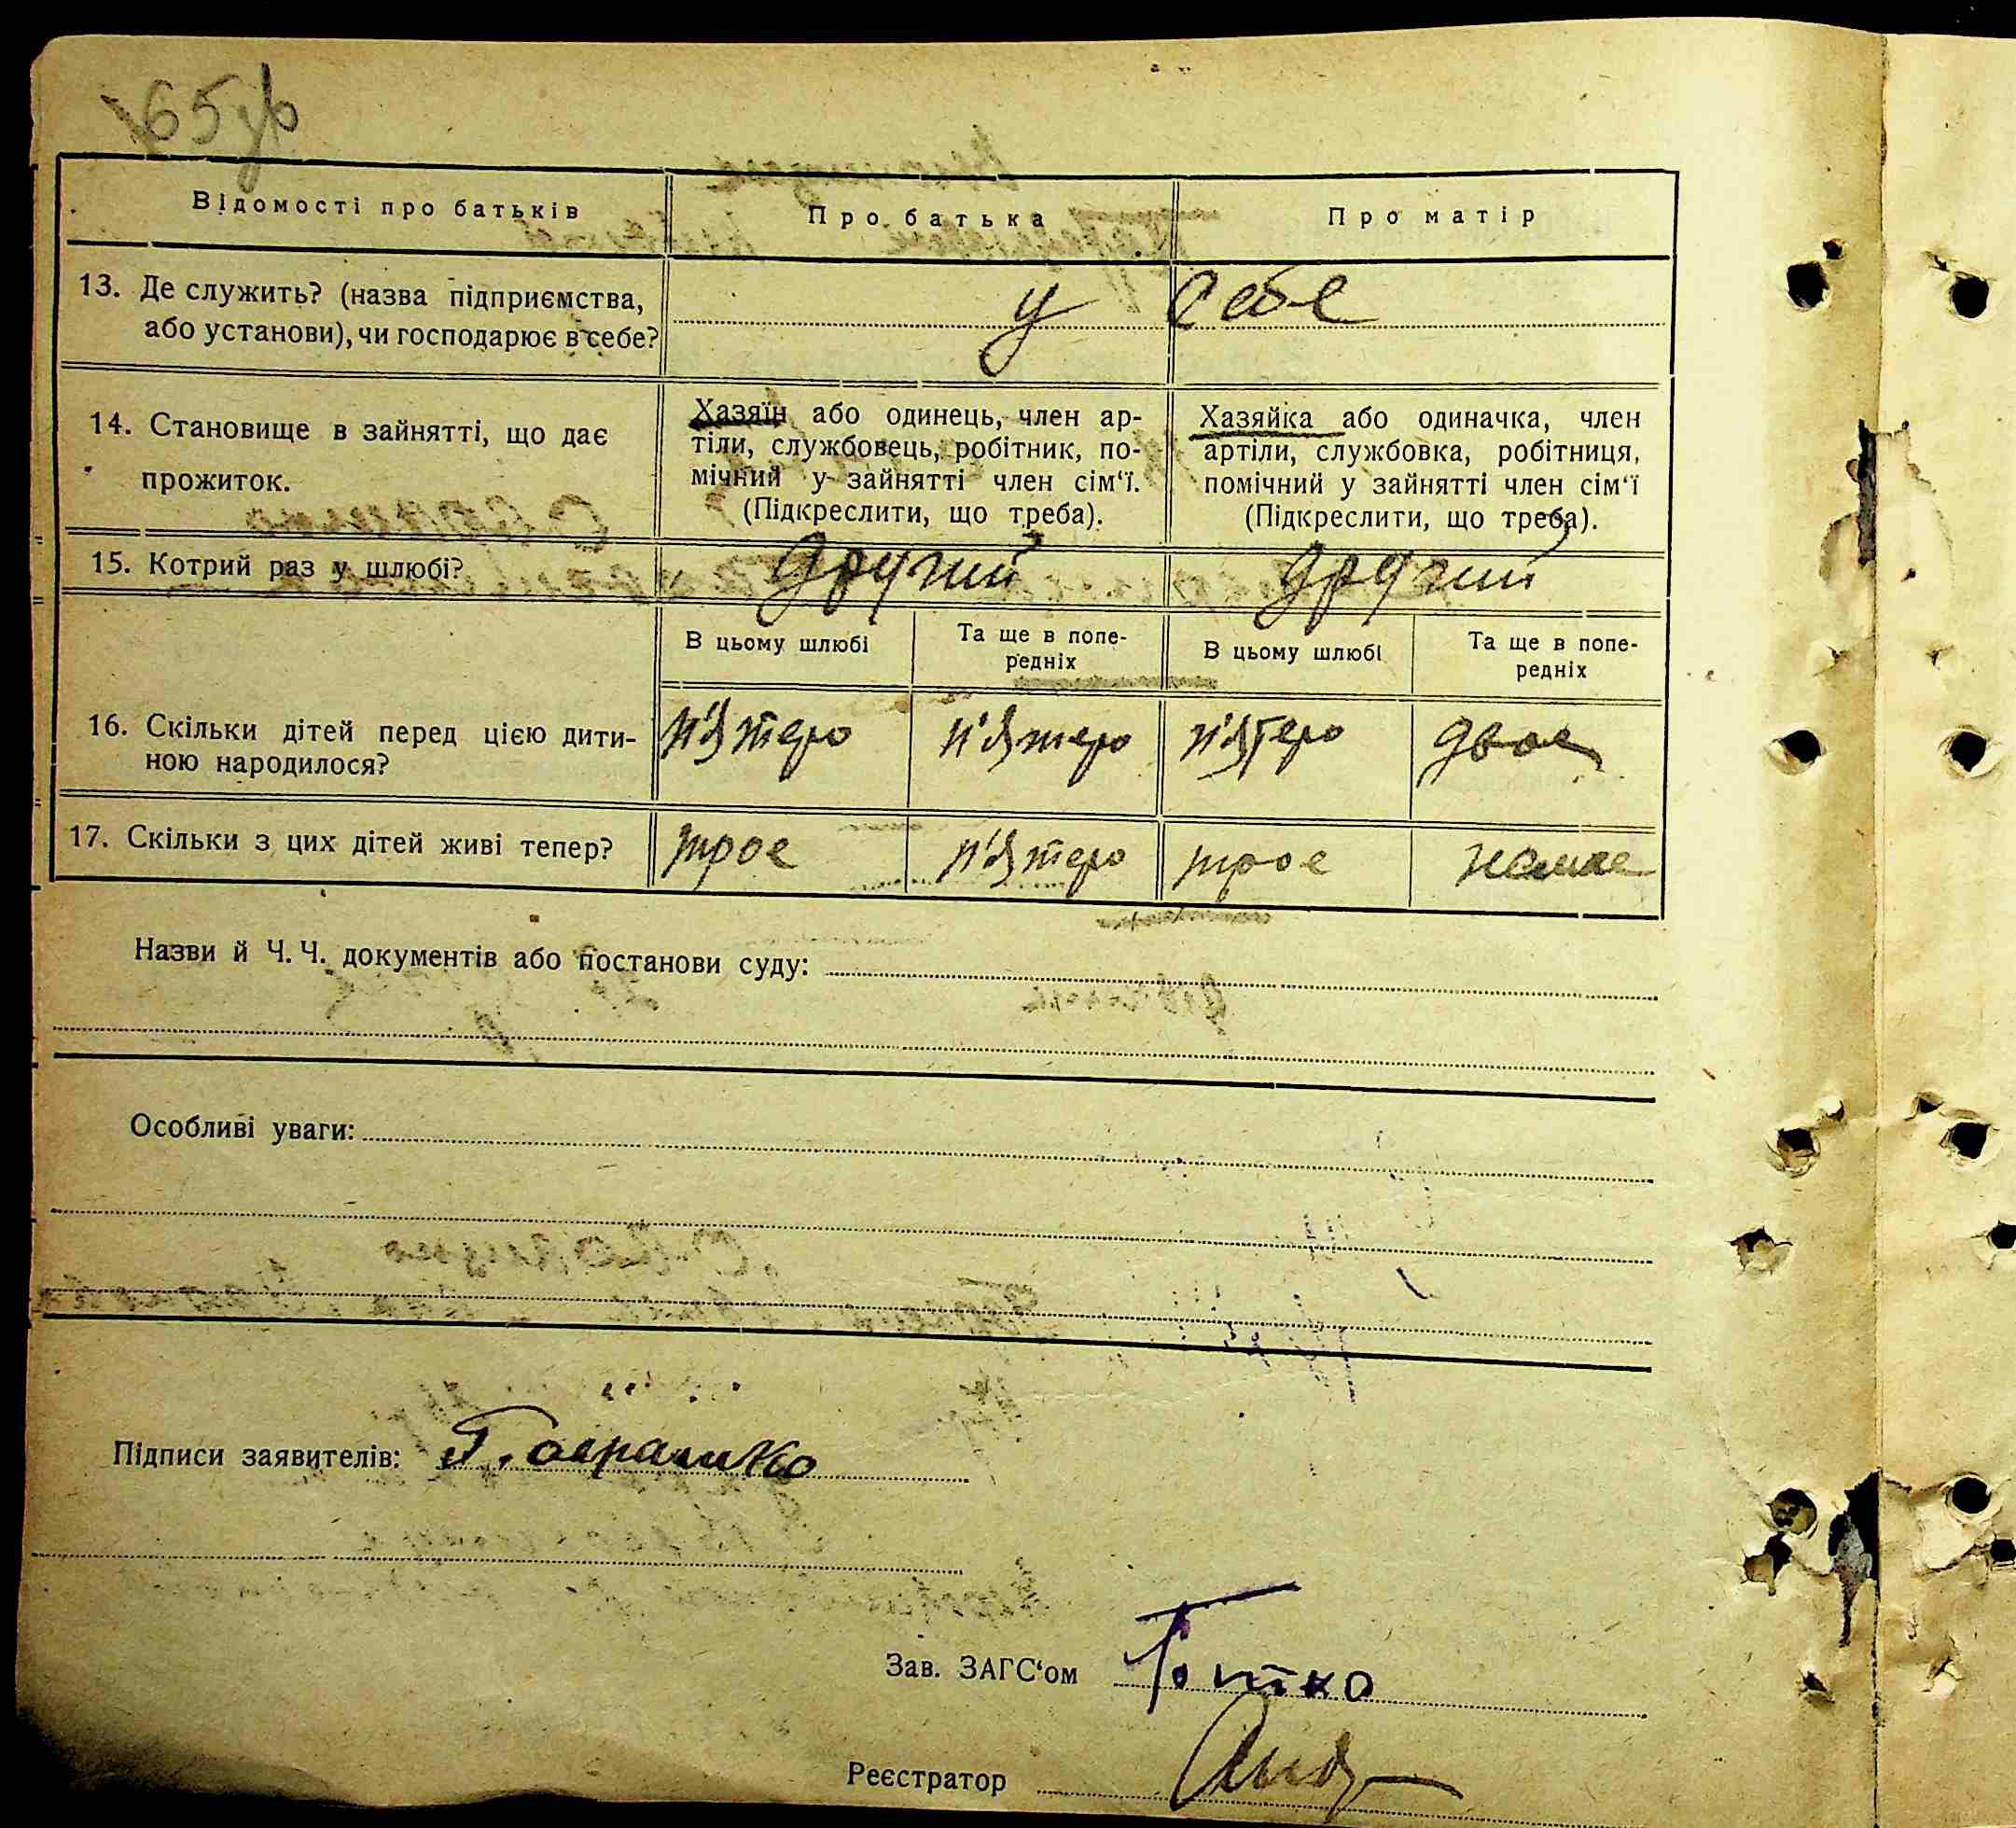 165зв
Відомості про батьків
Про батька
Про матір
13. Де служить? (назва підприємства,
або установи), чи господарює в себе?
у себе
14. Становище в зайнятті, що дає
прожиток.
Хазяїн або одинець, член ар-
тіли, службовець, робітник, по-
мічний у зайнятті член сім‘ї.
(Підкреслити, що треба).
Хазяйка або одиначка, член
артіли, службовка, робітниця,
помічний у зайнятті член сім‘ї
(Підкреслити, що треба).
15. Котрий раз у шлюбі?
другий
другий
В цьому шлюбі
Та ще в попе-
редніх
В цьому шлюбі
Та ще в попе-
редніх
16. Скільки дітей перед цією дити-
ною народилося?
п'ятеро
п'ятеро
п'ятеро
двоє
17. Скільки з цих дітей живі тепер?
троє
п'ятеро
троє
немає
Назви й Ч. Ч. документів або постанови суду:
Особливі уваги:
Підписи заявителів:
Зав. ЗАГС‘ом
Реєстратор